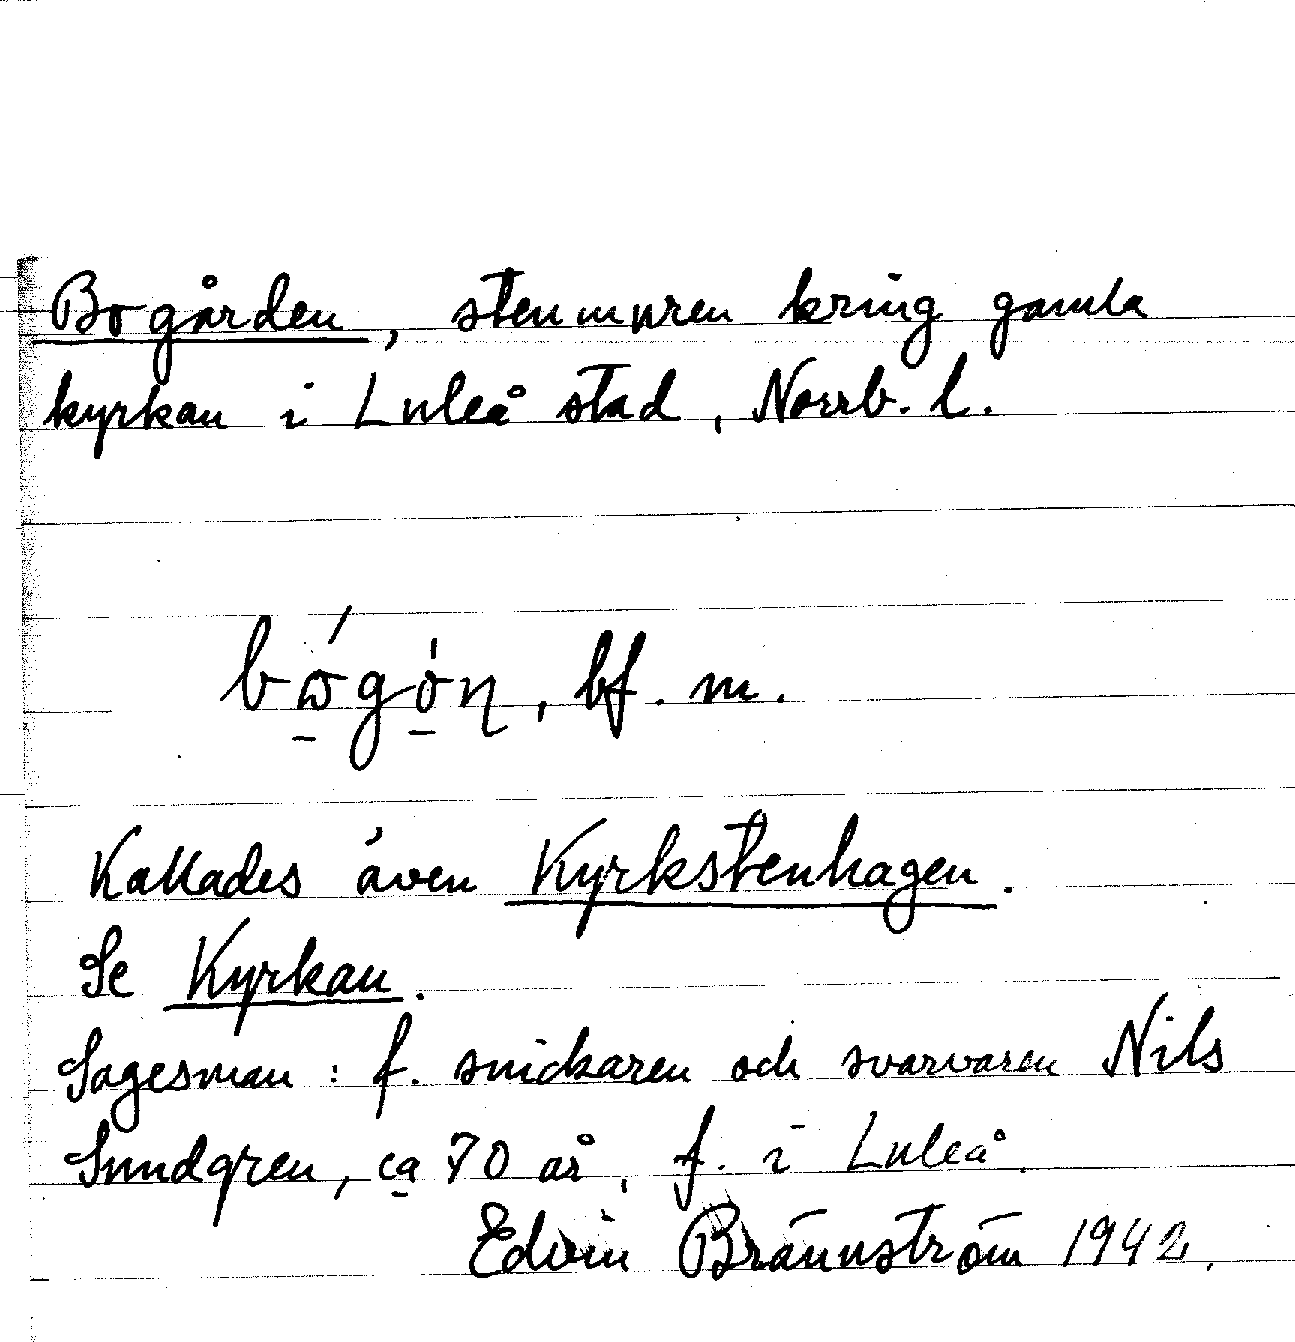 Bogården, stenmuren kring gamla
kyrkan i Luleå stad, Norrb. l.
bf. m.
Kallades även Kyrkstenhagen.
Se Kyrkan.
Sagesman: f. snickaren och svarvaren Nils
Sundgren, ca 70 år, f. i Luleå.
Edvin Brännström 1942.